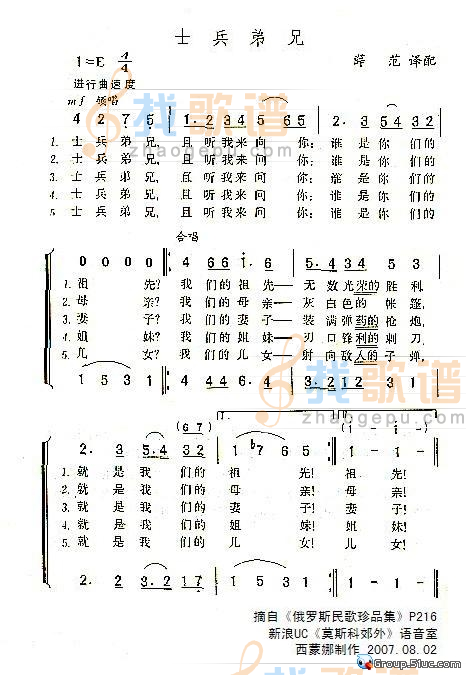 士兵弟兄
1=E 4/4
薛 范 译配
进行曲速度
mf 领唱
4 2 7 5 | 1· 2 3 4 5 5 | 2· 3 5 4 3 2
1. 士兵弟兄，且听我来问你：谁是你们的
2. 士兵弟兄，且听我来问你：谁是你们的
3. 士兵弟兄，且听我来问你：谁是你们的
4. 士兵弟兄，且听我来问你：谁是你们的
5. 士兵弟兄，且听我来问你：谁是你们的
找歌谱
zhaogepu.com
合唱
0 0 0 0
1. 祖先？我们的祖先——无数光荣的胜利，
2. 母亲？我们的母亲——灰白色的帐篷，
3. 妻子？我们的妻子——装满弹药的枪炮，
4. 姐妹？我们的姐妹——刃口锋利的刺刀，
5. 儿女？我们的儿女——射向敌人的子弹，
1 5 3 1
找歌谱
zhaogepu.com
(6 7) 1. 2. (1 - i -)
1. 就是我们的祖先！祖先！
2. 就是我们的母亲！母亲！
3. 就是我们的妻子！妻子！
4. 就是我们的姐妹！姐妹！
5. 就是我们的儿女！儿女！
摘自《俄罗斯民歌珍品集》P216
新浪UC《莫斯科郊外》语音室
西蒙娜制作 2007.08.02
找歌谱
Group.51uc.com